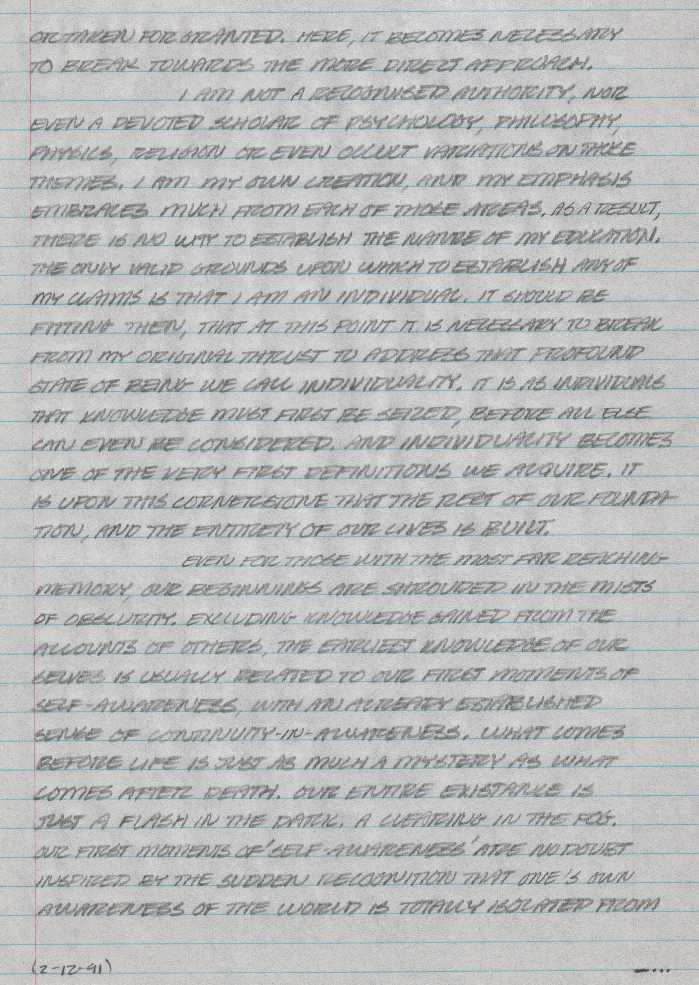 OR TAKEN FOR GRANTED. HERE, IT BECOMES NECESSARY
TO BREAK TOWARDS THE MORE DIRECT APPROACH.
I AM NOT A RECOGNISED AUTHORITY, NOR
EVEN A DEVOTED SCHOLAR OF PSYCHOLOGY, PHILOSOPHY,
PHYSICS, RELIGION OR EVEN OCCULT VARIATIONS ON THOSE
THEMES. I AM MY OWN CREATION, AND MY EMPHASIS
EMBRACES MUCH FROM EACH OF THOSE AREAS. AS A RESULT,
THERE IS NO WAY TO ESTABLISH THE NATURE OF MY EDUCATION.
THE ONLY VALID GROUNDS UPON WHICH TO ESTABLISH ANY OF
MY CLAIMS IS THAT I AM AN INDIVIDUAL. IT SHOULD BE
FITTING THEN, THAT AT THIS POINT IT IS NECESSARY TO BREAK
FROM MY ORIGINAL THRUST TO ADDRESS THAT PROFOUND
STATE OF BEING WE CALL INDIVIDUALITY. IT IS AS INDIVIDUALS
THAT KNOWLEDGE MUST FIRST BE SEIZED, BEFORE ALL ELSE
CAN EVEN BE CONSIDERED. AND INDIVIDUALITY BECOMES
ONE OF THE VERY FIRST DEFINITIONS WE AQUIRE. IT
IS UPON THIS CORNERSTONE THAT THE REST OF OUR FOUNDA-
TION, AND THE ENTIRETY OF OUR LIVES IS BUILT.
EVEN FOR THOSE WITH THE MOST FAR REACHING
MEMORY, OUR BEGINNINGS ARE SHROUDED IN THE MISTS
OF OBSCURITY. EXCLUDING KNOWLEDGE GAINED FROM THE
ACCOUNTS OF OTHERS, THE EARLIEST KNOWLEDGE OF OUR
SELVES IS USUALLY RELATED TO OUR FIRST MOMENTS OF
SELF-AWARENESS, WITH AN ALREADY ESTABLISHED
SENSE OF CONTINUITY-IN-AWARENESS. WHAT COMES
BEFORE LIFE IS JUST AS MUCH A MYSTERY AS WHAT
COMES AFTER DEATH. OUR ENTIRE EXISTANCE IS
JUST A FLASH IN THE DARK. A CLEARING IN THE FOG.
OUR FIRST MOMENTS OF 'SELF-AWARENESS' ARE NO DOUBT
INSPIRED BY THE SUDDEN RECOGNITION THAT ONE'S OWN
AWARENESS OF THE WORLD IS TOTALLY ISOLATED FROM
(2-12-91) —...